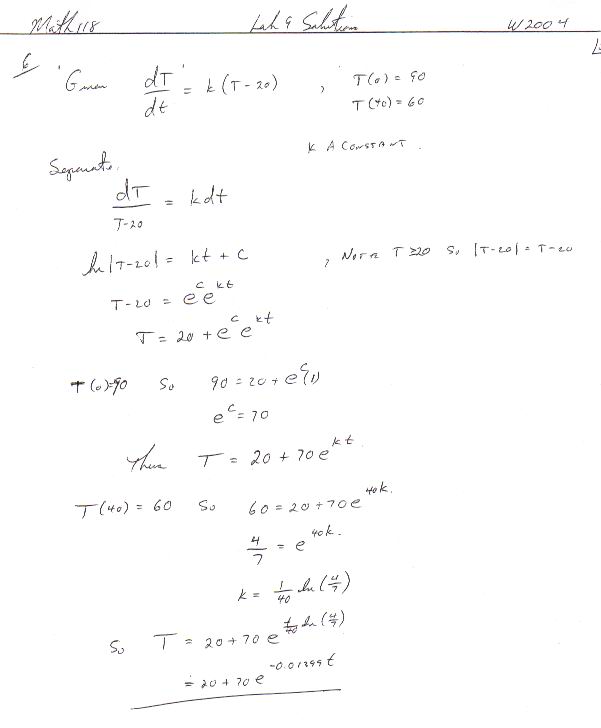 Math 118 Lab 9 Solution W2004
6
Given dT/dt = k(T-20) , T(0) = 90
T(40) = 60
K A CONSTANT.
Separate.
dT/T-20 = kdt
ln|T-20| = kt + C , NOTE T ≥ 20 So |T-20| = T-20
T-20 = e^c e^kt
T = 20 + e^c e^kt
T(0)=90 So 90 = 20 + e^c(1)
e^c = 70
Thus T = 20 + 70e^kt.
T(40) = 60 So 60 = 20 + 70e^40k.
4/7 = e^40k.
k = 1/40 ln(4/7)
So T = 20 + 70e^1/40 ln(4/7)
≐ 20 + 70e^-0.01399t